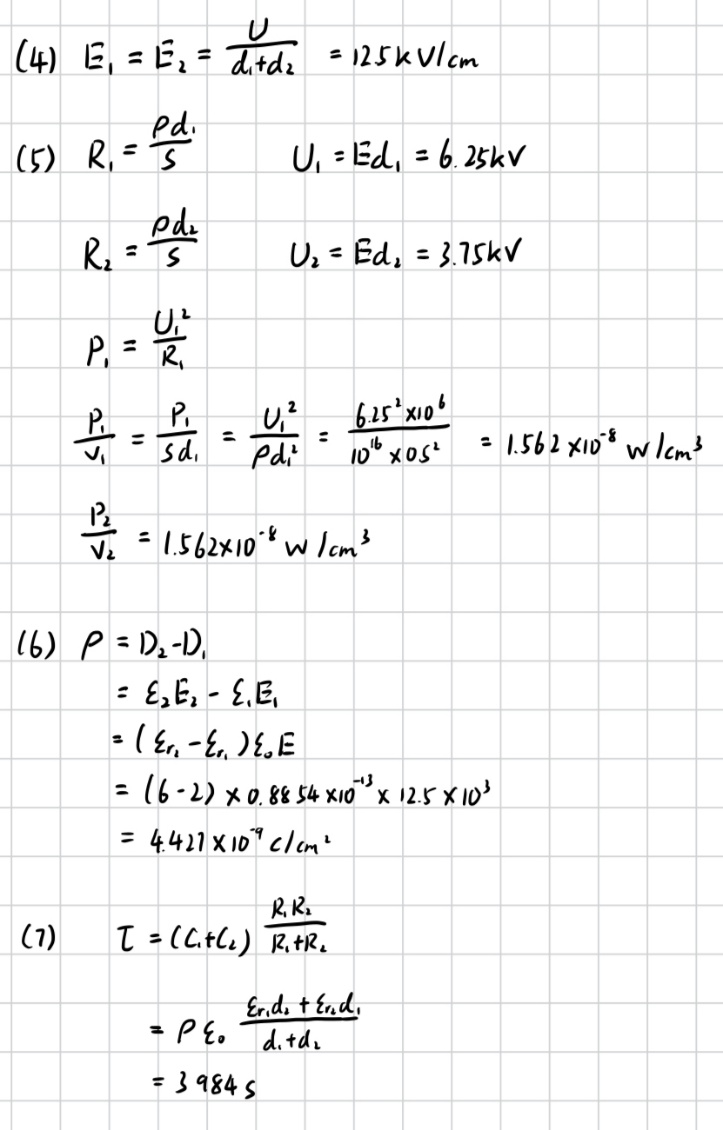 (4) E₁ = E₂ = U/(d₁+d₂) = 12.5kV/cm
(5) R₁ = ρd₁/S U₁ = Ed₁ = 6.25kV
R₂ = ρd₂/S U₂ = Ed₂ = 3.75kV
P₁ = U₁²/R₁
P₁/V₁ = P₁/Sd₁ = U₁²/ρd₁² = 6.25²×10⁶/10¹⁶×0.5² = 1.562×10⁻⁸ W/cm³
P₂/V₂ = 1.562×10⁻⁸ W/cm³
(6) ρ = D₂-D₁
= ε₂E₂ - ε₁E₁
= (εr₂ - εr₁)ε₀E
= (6-2) × 0.8854×10⁻¹³ × 12.5×10³
= 4.427×10⁻⁹ C/cm²
(7) τ = (C₁+C₂) R₁R₂/(R₁+R₂)
= ρε₀ (εr₁d₂ + εr₂d₁)/(d₁+d₂)
= 3984s